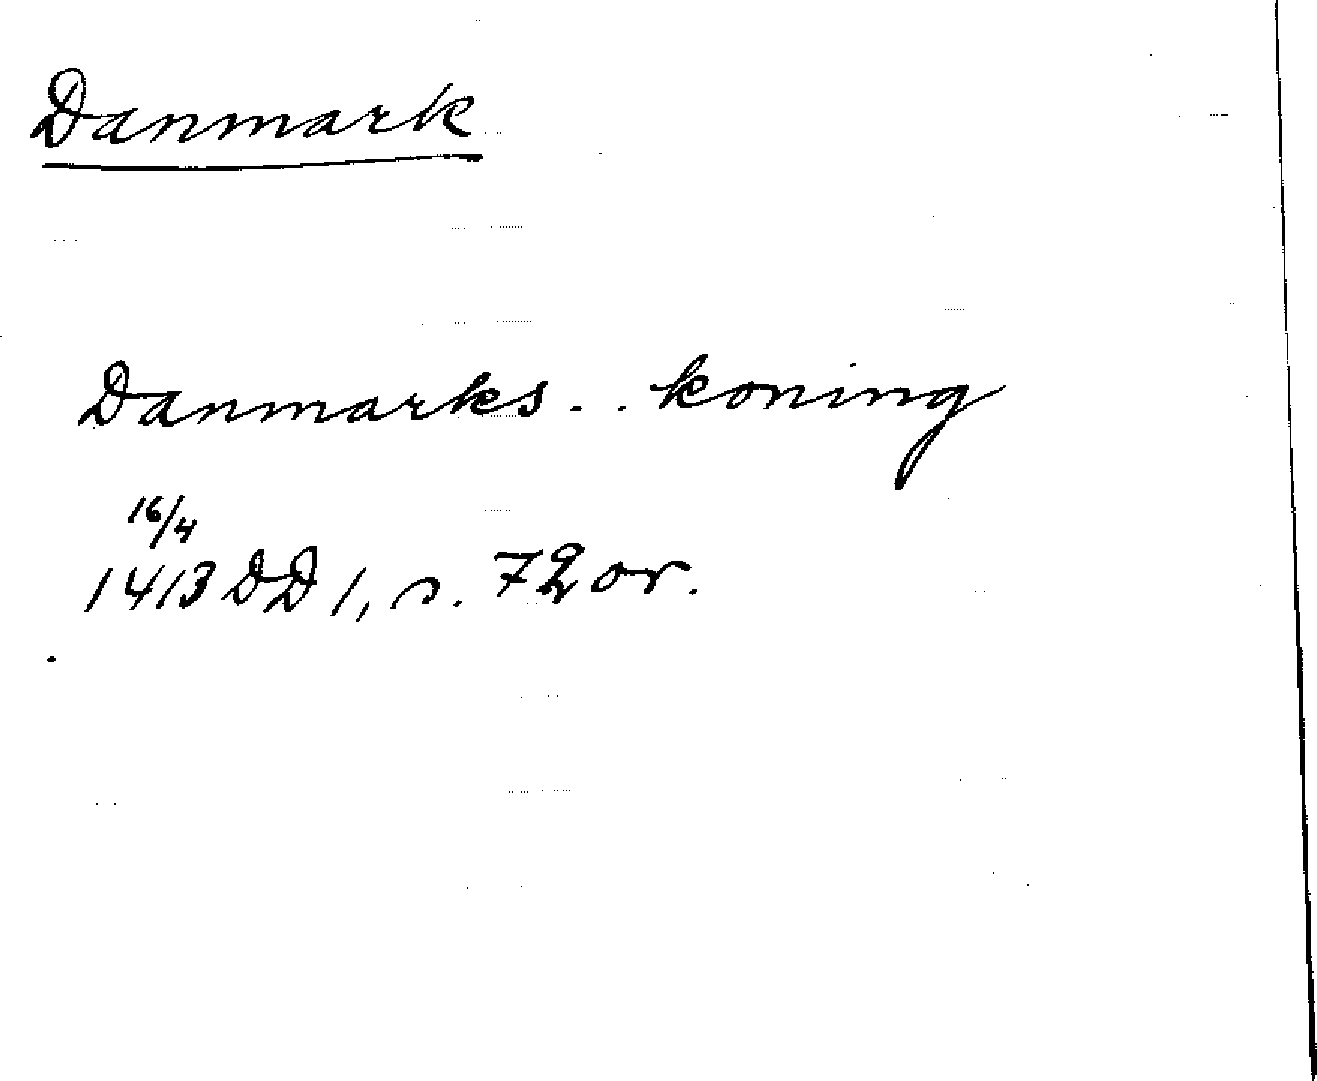 Danmark
Danmarks . . koning
16/4
1413 DD 1, s. 72 or.